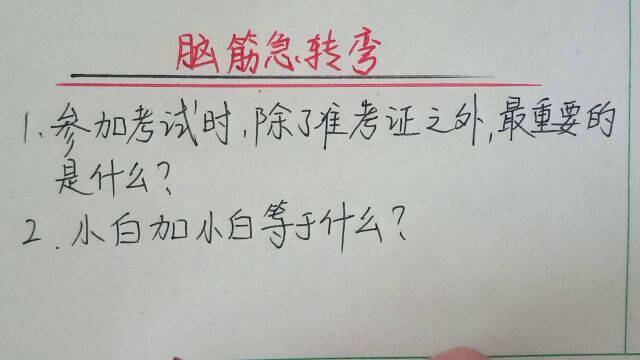 脑筋急转弯
1、参加考试时,除了准考证之外,最重要的
是什么?
2.小白加小白等于什么?